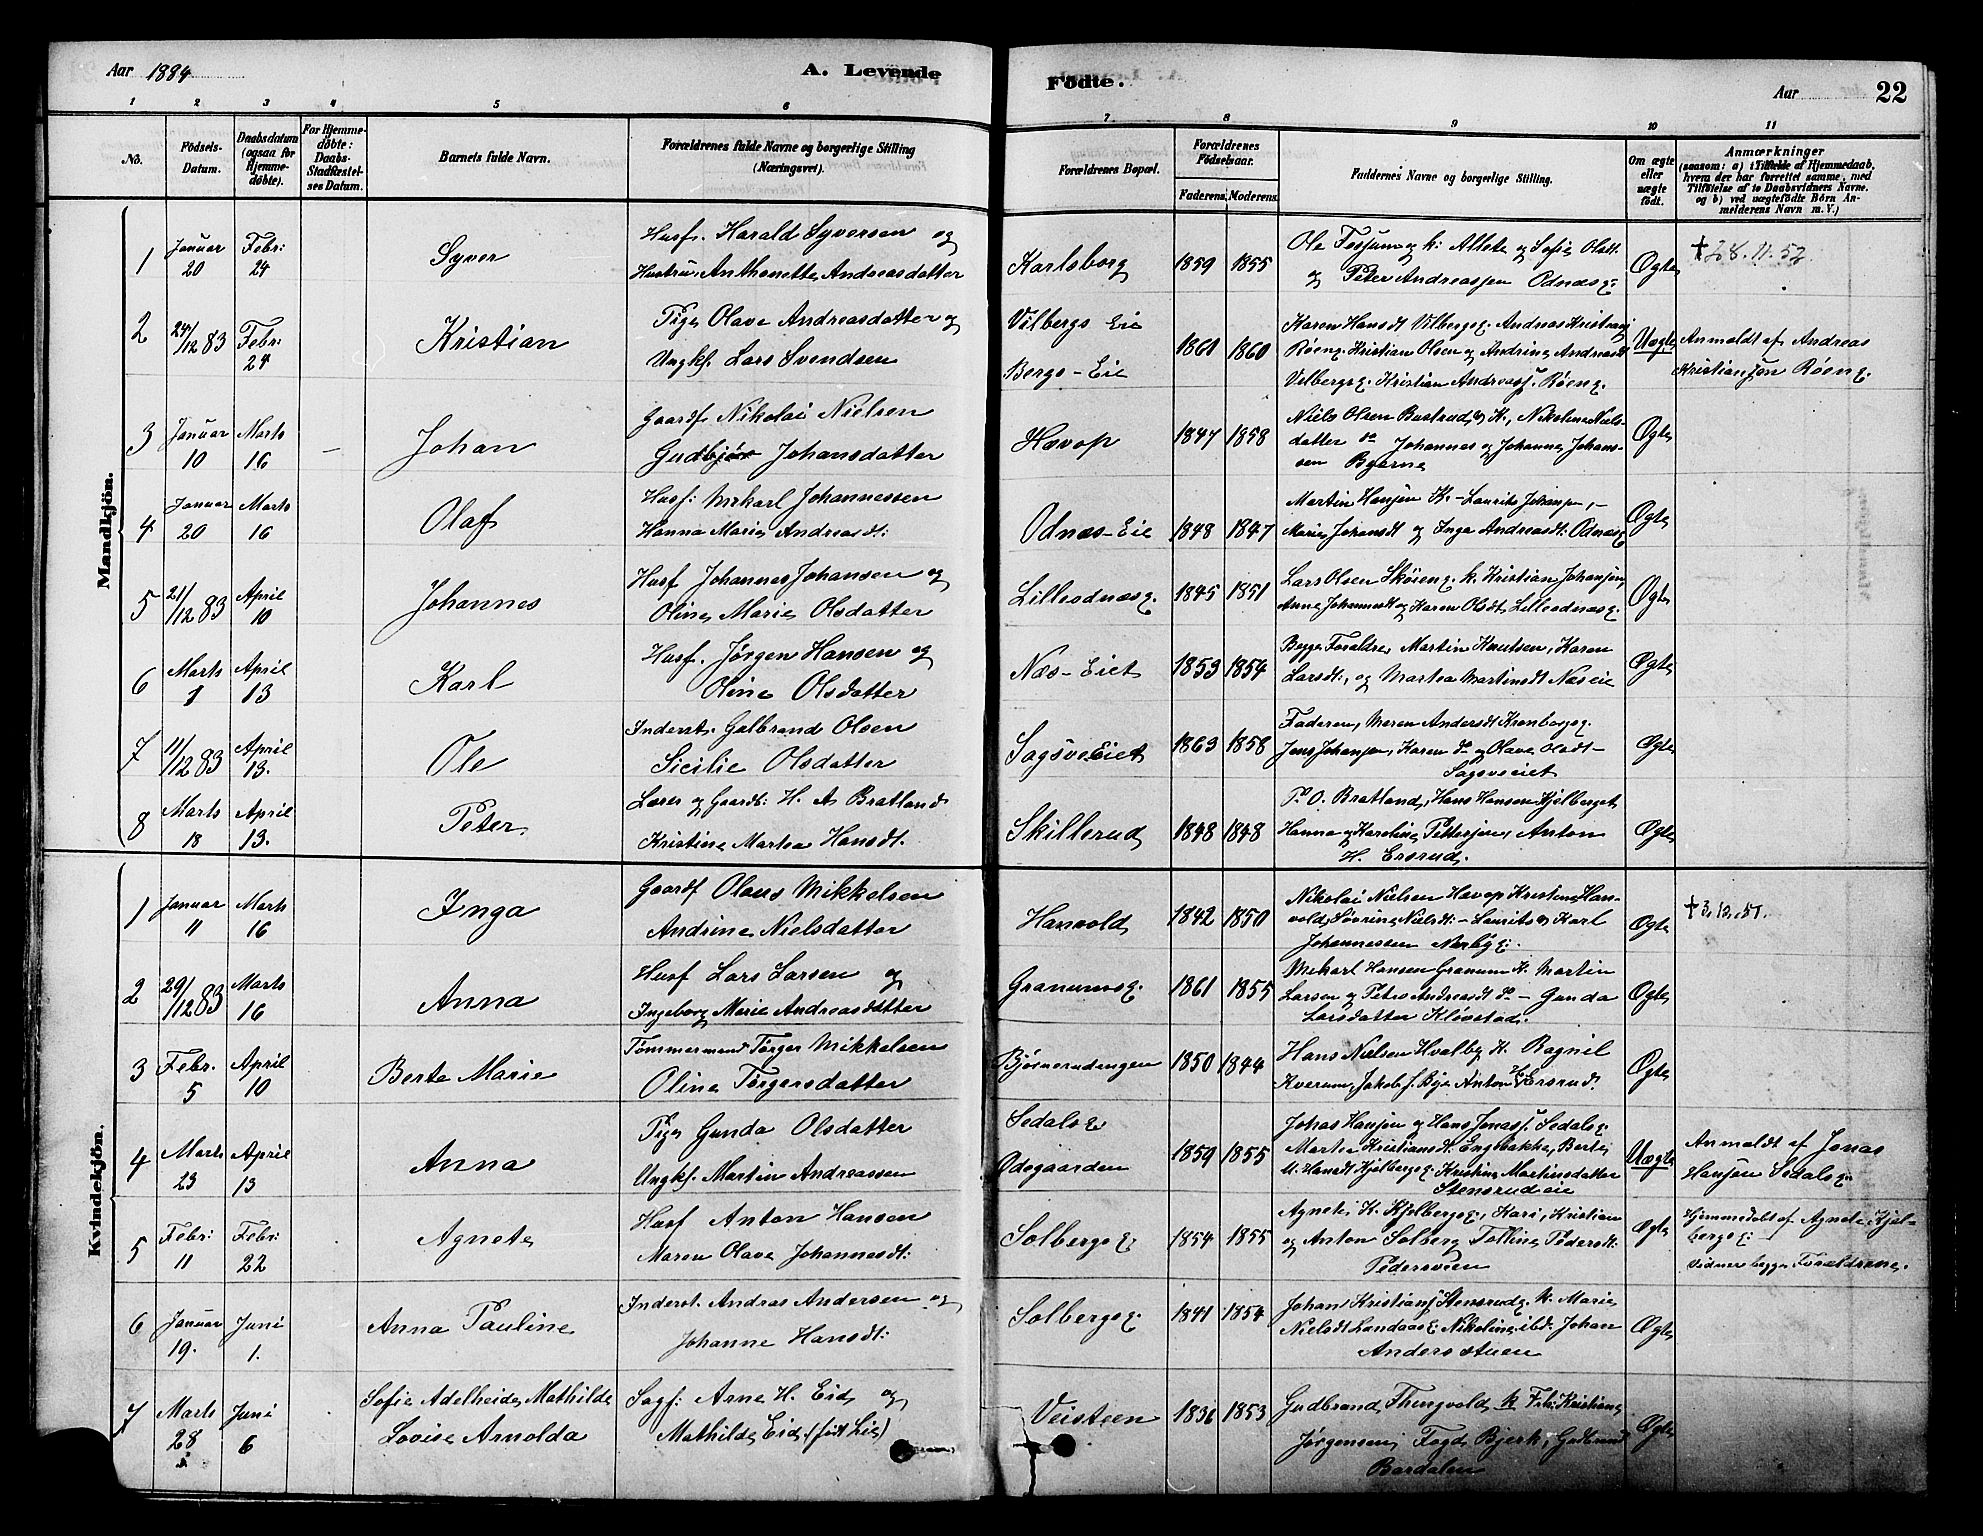 Aar 1884
A. Levende
Fødte.
Aar 22
1 2 3 4 5 6 7 8 9 10 11
No.
Fødsels-
Datum.
Daabsdatum
(ogsaa for
Hjemme-
døbte).
For Hjemme-
døbte:
Daabs-
Stadfæstel-
ses Datum.
Barnets fulde Navn.
Forældrenes fulde Navne og borgerlige Stilling
(Næringsvei).
Forældrenes Bopæl.
Forældrenes
Fødselsaar.
Faderens. Moderens.
Faddernes Navne og borgerlige Stilling.
Om ægte
eller
uægte
født.
Anmærkninger
(saasom: a) i Tilfælde af Hjemmedaab,
hvem der har forrettet samme, med
Tilføielse af to Daabsvidners Navne.
og b) ved uægtefødte Børn An-
melderens Navn m. V.)
Mandkjön.
1 Januar 20 Febr: 24 Syver
Husf. Harald Syversen og
Hustru Anthonette Andreasdatter
Karlsborg 1859 1855
Ole Fossum og k: Allete og Sofie Olsdt.
og Peter Andreassen Odnæsg:
Ægte
✝28.11.52.
2 24/12 83 Febr: 24 Kristian
Pige Olave Andreasdatter og
Ungkf. Lars Svendsen
Vilbergs Eie
Bergs-Eie
1861 1860
Karen Hansdt Vilbergsg. Andreas Kristians
Røeng. Kristian Olsen og Andrine Andreasdt
Velbergsg. Kristian Andreass. Røeng.
Uægte
Anmeldt af Andreas
Kristiansen Røeng.
3 Januar 10 Marts 16 – Johan
Gaardf Nikolai Nielsen
Gudbjør Johansdatter
Hævop 1847 1858
Niels Olsen Bustrud, K, Nikoline Niels-
datter do Johannes og Johanne Johans-
sen Bjerne
Ægte
4 Januar 20 Marts 16 Olaf
Husf: Mekarl Johannessen
Hanna Marie Andreasdt:
Odnæs-Eie 1848 1847
Martin Hansen K. – Laurits Johansen, –
Marie Johansdt og Inga Andreasdt: Odnæsg
Ægte
5 21/12 83 April 10 Johannes
Husf Johannes Johansen og
Oline Marie Olsdatter
Lilleodnæsg. 1845 1851
Lars Olsen Skøieng. k. Kristian Johansen,
Anne Johannesdt og Karen Olsdt, Lilleodnæsg.
Ægte
6 Marts 1 April 13 Karl
Husf. Jørgen Hansen og
Oline Olsdatter
Næs-Eiet 1853 1854
Begge Forældre, Martin Knutsen, Karen
Larsdt:, og Martea Martinsdt Næseie
Ægte
7 11/12 83 April 13. Ole
Inderst. Gulbrand Olsen
Sicilie Olsdatter
Sagsveeiet 1863 1858
Faderen, Maren Andersdt Kronborgsg.
Jens Johansen, Karen do og Olave Olsdt –
Sagsveeiet
Ægte
8 Marts 18 April 13. Peter
Lærer og Gaardb: H. A Bratland
Kristine Martea Hansdt.
Skillerud 1848 1848
P. O. Bratland, Hans Hansen Kjelberget,
Hanna og Karoline Pettersen, Anton
H. Ersrud.
Ægte
Kvindekjön.
1 Januar 11 Marts 16 Inga
Gaardf Olaus Mikkelsen
Andrine Nielsdatter
Hanvold 1842 1850
Nikolai Nielsen Hævop Kristine Han-
vold, Søvrine Nielsdt: – Laurits og Karl
Johannessen Nerbyg:
Ægte
✝3.12.51.
2 29/12 83 Marts 16 Anna
Husf Lars Larsen og
Ingeborg Marie Andreasdatter
Granumsg. 1861 1855
Mekarl Hansen Granum K. Martin
Larsen og Petra Andreasdt do – Gunda
Larsdatter Kløvstad.
Ægte
3 Febr. 5 April 10 Berte Marie
Tømmermand Tørger Mikkelsen
Oline Tørgersdatter
Bjørnerudengen 1850 1844
Hans Nielsen Hvalby K. Ragnil
Kverum, Jakob J. Bye Anton H Ersrud.
Ægte
4 Marts 23 April 13 Anna
Pige Gunda Olsdatter
Ungkf. Martin Andreassen
Sedalsg
Ødegaarden
1859 1855
Johas Hansen og Hans Jonass. Sedalsg.
Marte Kristiansdt. Engebakke, Berte
M. Hansdt Kjølbergsg. Kristine Martinsdatter
Stensrudeie
Uægte
Anmeldt af Jonas
Hansen Sedalsg.
5 Febr: 11 Febr: 22 Agnete
Husf Anton Hansen
Maren Olave Johannesdt:
Solbergsg. 1854 1855
Agnete K. Kjølbergsg., Kari, Kristian
og Anton Solberg Tolline Pedersdt:
Pedersveen
Ægte
Hjemmedøbt af Agnete Kjøl-
bergsg.
Vidner begge Forældrene.
6 Januar 19. Juni 1. Anna Pauline
Inderst. Andras Andersen og
Johanne Hansdt:
Solbergsg. 1841 1854
Johan Kristians. Stensrudg. k. Marie
Nielsdt Landaasg. Nikoline ibd. Johan
Andersstuen
Ægte
7 Marts 28 Juni 6
Sofie Adelheide Mathilde
Lovise Arnolda
Sagf: Arne H. Eid og
Mathilde Eid (født Lie)
Veisteen 1836 1853
Gudbrand Thingvold k Frk: Kristiane
Jørgensen, Fogd Bjerk, Gudbrand
Bardalen
Ægte